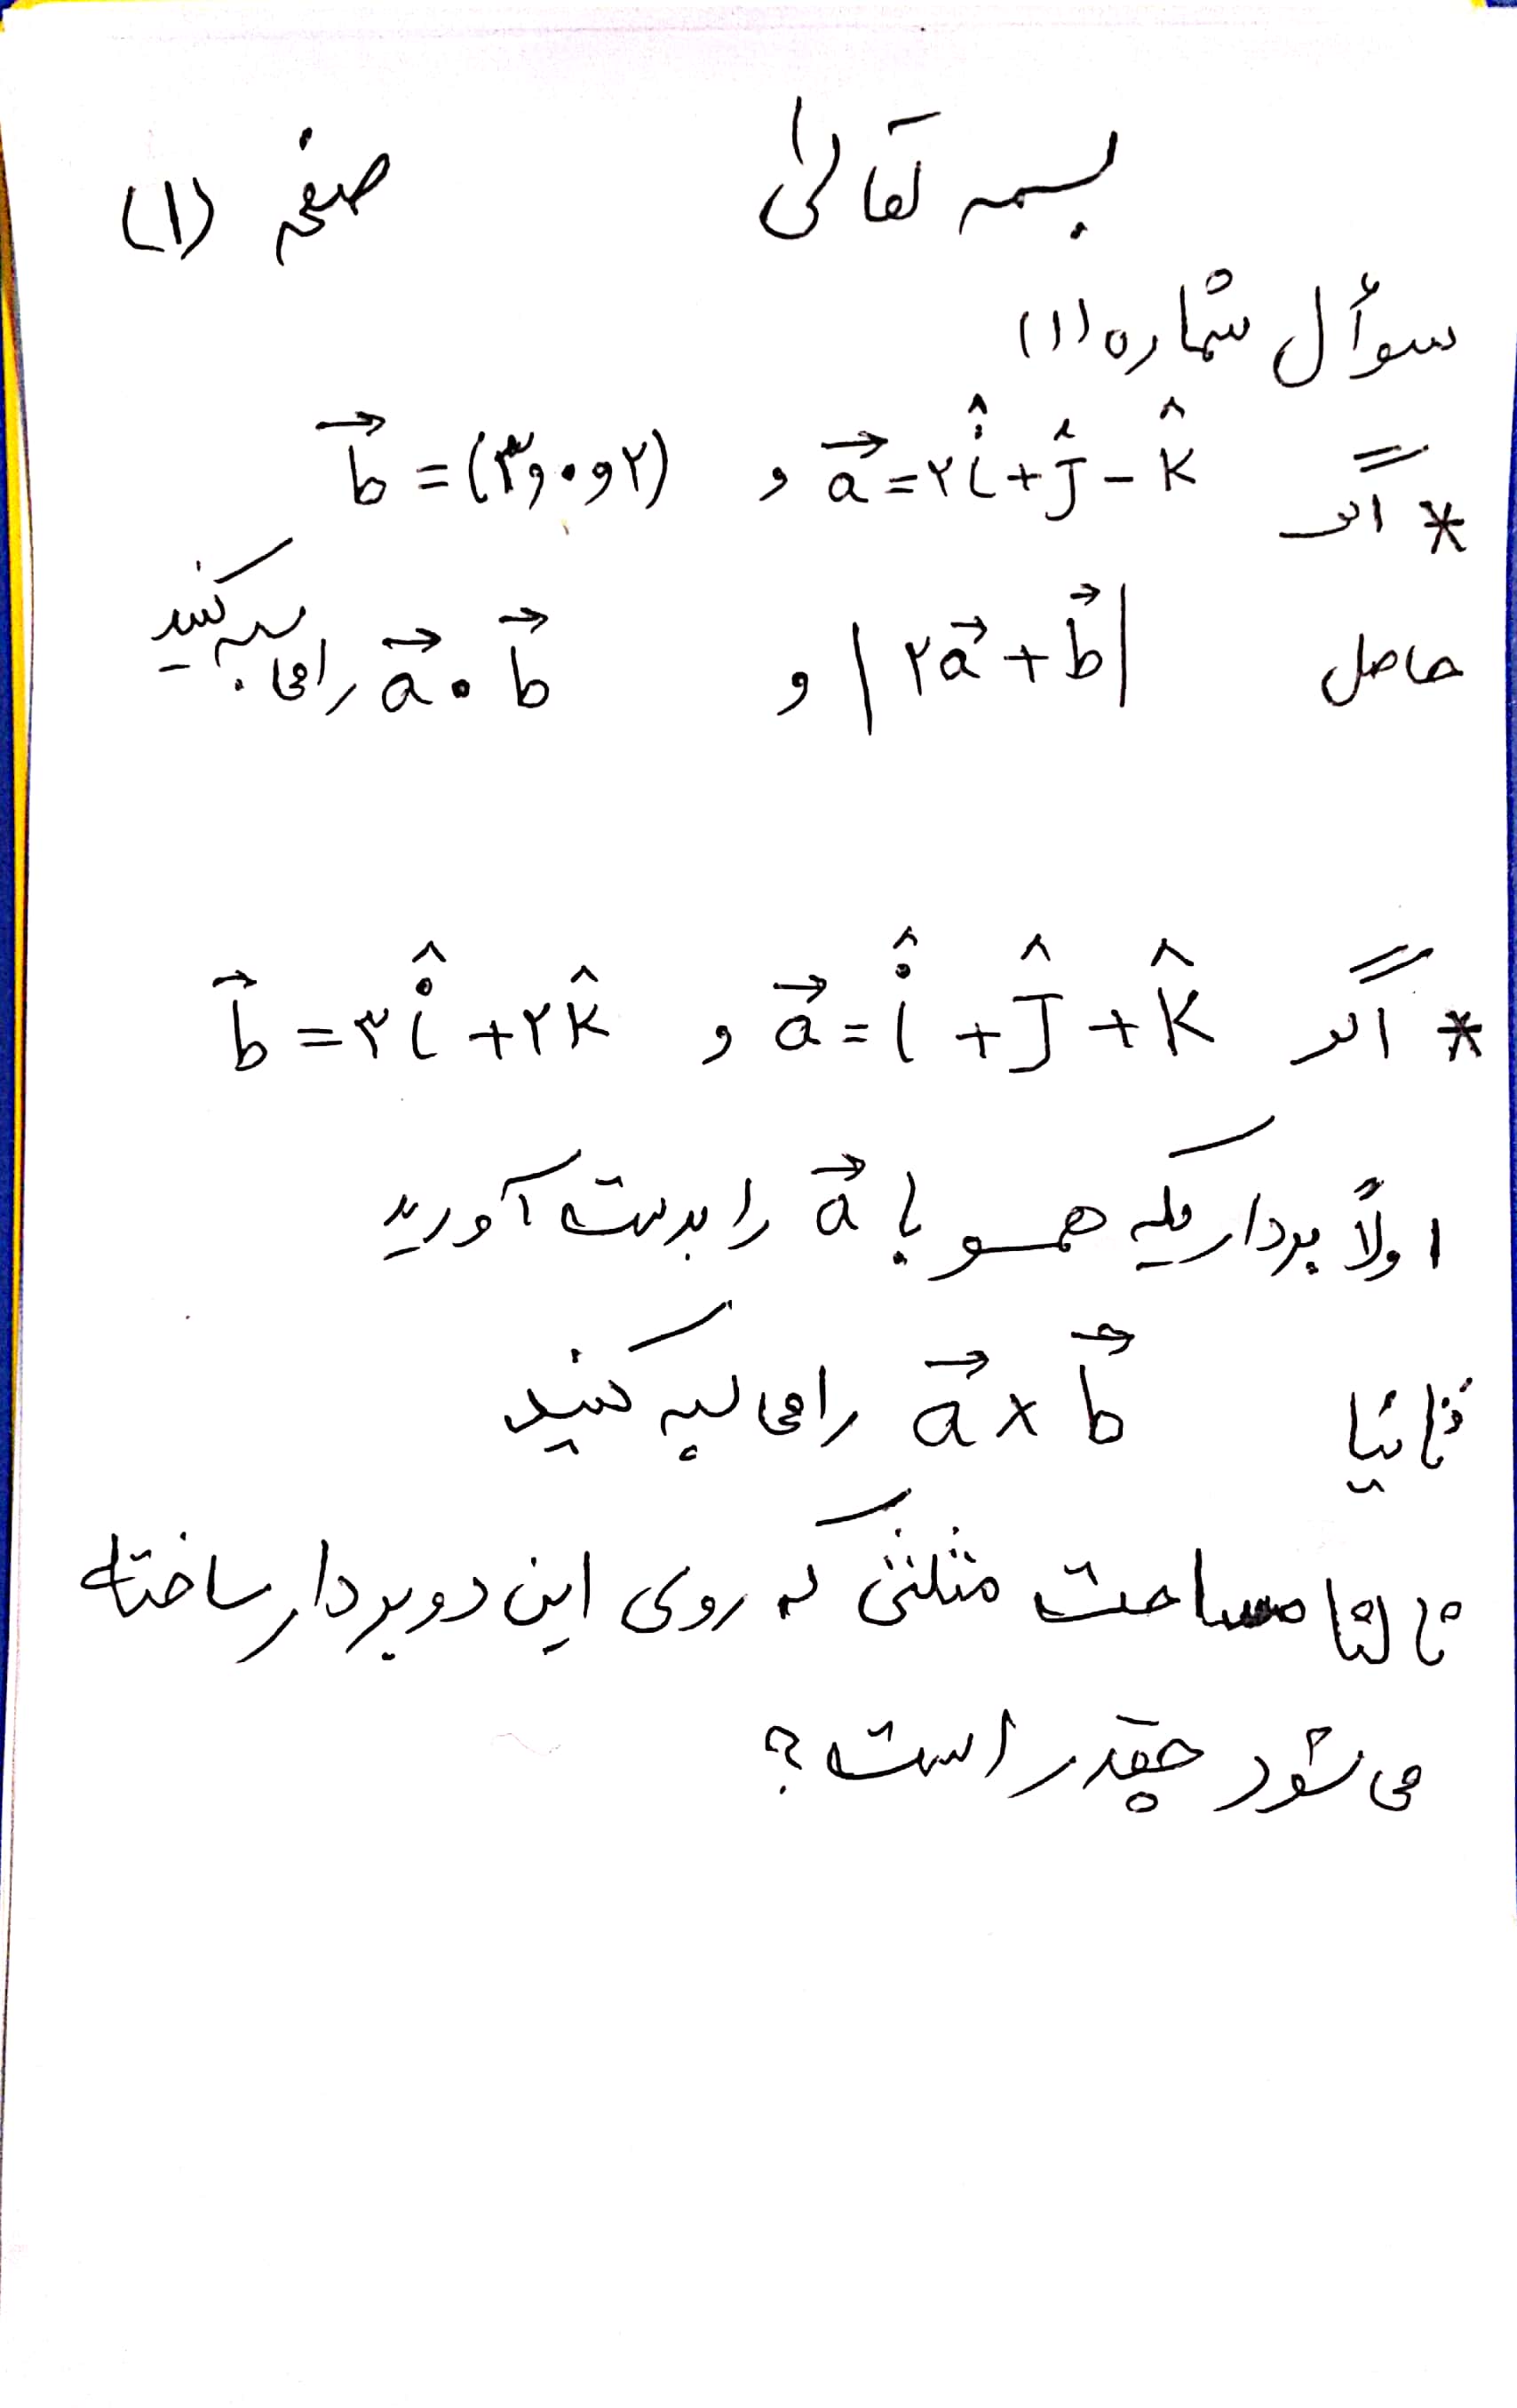 بسمه تعالی صفحه (۱)
سوأل شماره (۱)
* اگر a⃗ = ۲î + ĵ - k̂ و b⃗ = (۳و۰و۲)
حاصل |۲a⃗ + b⃗| و a⃗ • b⃗ را محاسبه کنید
* اگر a⃗ = î + ĵ + k̂ و b⃗ = ۳î + ۲k̂
اولاً بردار یکه همسو با a⃗ را بدست آورید
ثانیا a⃗ × b⃗ را محاسبه کنید
ثالثا مساحت مثلثی که روی این دو بردار ساخته
می شود چقدر است؟